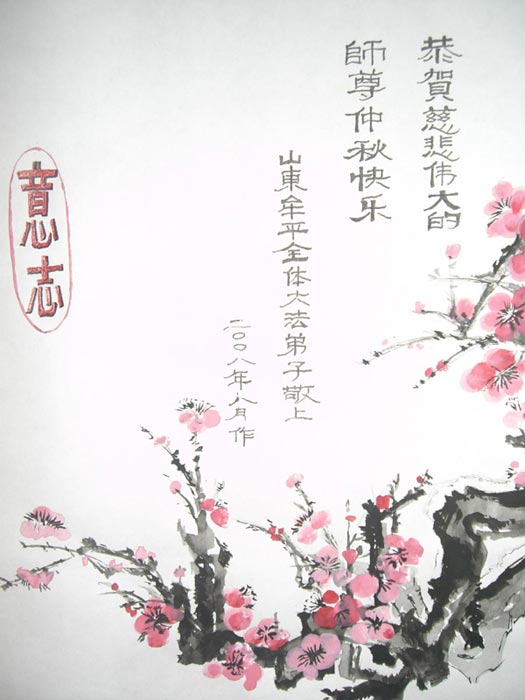 恭賀慈悲伟大的
師尊仲秋快乐
山東牟平全体大法弟子敬上
二００八年八月作
意志